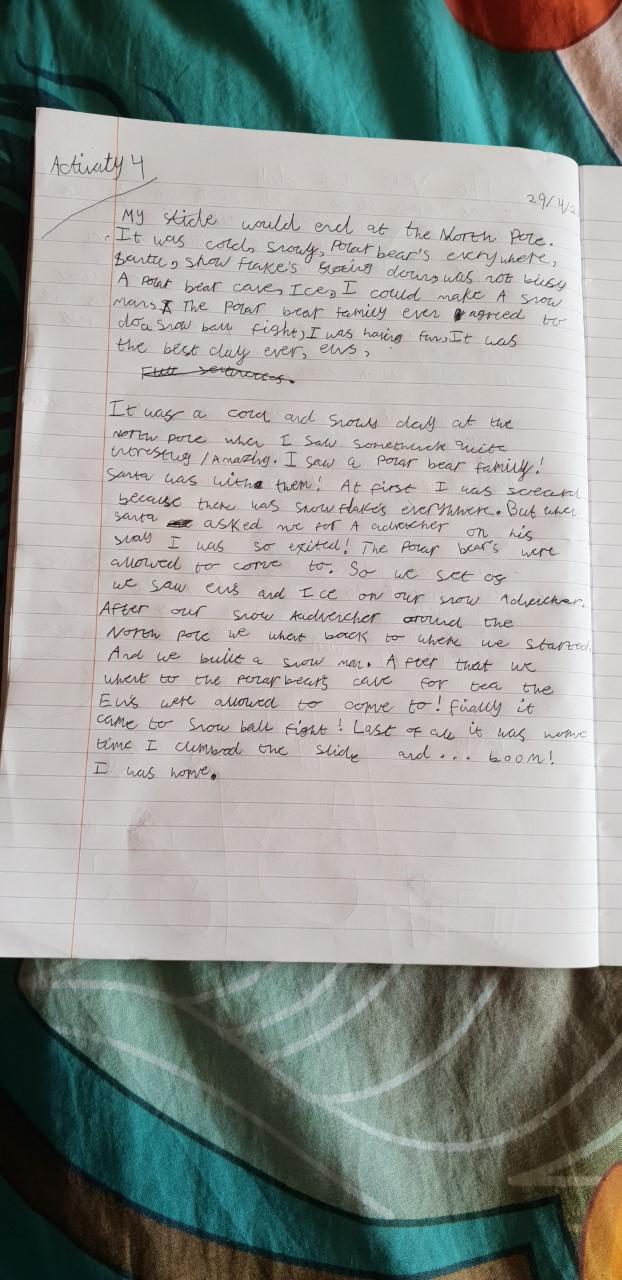 Activaty 4
29/4/2
My slide would end at the North Pole.
It was cold, snowy, Polar bear's everywhere,
Santa, snow flake's floating down, was not busy
A Polar bear cave, Ice, I could make A snow
man, The Polar bear family even agreed to
do a snow ball fight, I was having fun, It was
the best day ever, elvs,
Full sentences.
It was a cold and snowy day at the
North Pole when I saw something quite
intresting / Amazing. I saw a Polar bear family!
Santa was with them! At first I was screard
because there was snow flake's everywhere. But when
santa asked me for A advencher on his
slay I was so exited! The Polar bear's were
allowed to come to. So we set of
we saw elvs and Ice on our snow Advencher.
After our snow Aadvencher around the
North Pole we whent back to where we started.
And we built a snow man. After that we
whent to the Polar bear's cave for tea the
Elvs were allowed to come to! finally it
came to snow ball fight! Last of all it was home
time I climbed the slide and... boom!
I was home.